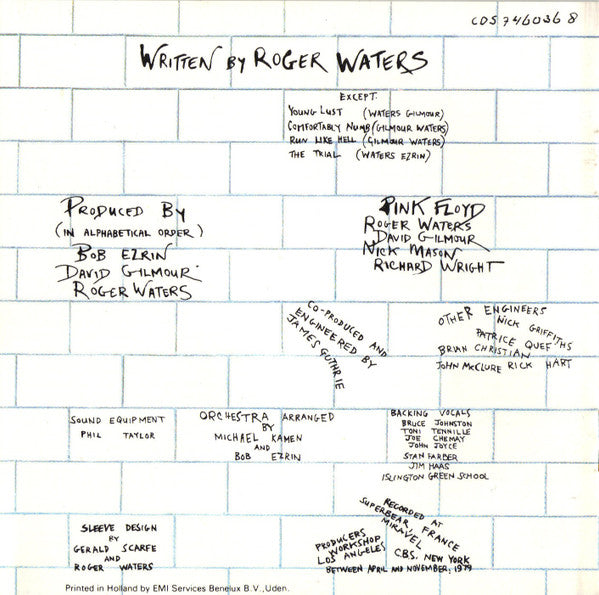 CDS 7460368
WRITTEN BY ROGER WATERS
EXCEPT:
YOUNG LUST (WATERS GILMOUR)
COMFORTABLY NUMB (GILMOUR WATERS)
RUN LIKE HELL (GILMOUR WATERS)
THE TRIAL (WATERS EZRIN)
PRODUCED BY
(IN ALPHABETICAL ORDER)
BOB EZRIN
DAVID GILMOUR
ROGER WATERS
PINK FLOYD
ROGER WATERS
DAVID GILMOUR
NICK MASON
RICHARD WRIGHT
CO-PRODUCED AND
ENGINEERED BY
JAMES GUTHRIE
OTHER ENGINEERS
NICK GRIFFITHS
PATRICE QUEF
BRIAN CHRISTIAN
JOHN McCLURE RICK HART
SOUND EQUIPMENT
PHIL TAYLOR
ORCHESTRA ARRANGED
BY
MICHAEL KAMEN
AND
BOB EZRIN
BACKING VOCALS
BRUCE JOHNSTON
TONI TENNILLE
JOE CHEMAY
JOHN JOYCE
STAN FARBER
JIM HAAS
ISLINGTON GREEN SCHOOL
SLEEVE DESIGN
BY
GERALD SCARFE
AND
ROGER WATERS
RECORDED AT
SUPERBEAR, FRANCE
MIRAVEL
CBS. NEW YORK
PRODUCERS
WORKSHOP
LOS ANGELES
BETWEEN APRIL AND NOVEMBER, 1979
Printed in Holland by EMI Services Benelux B.V., Uden.